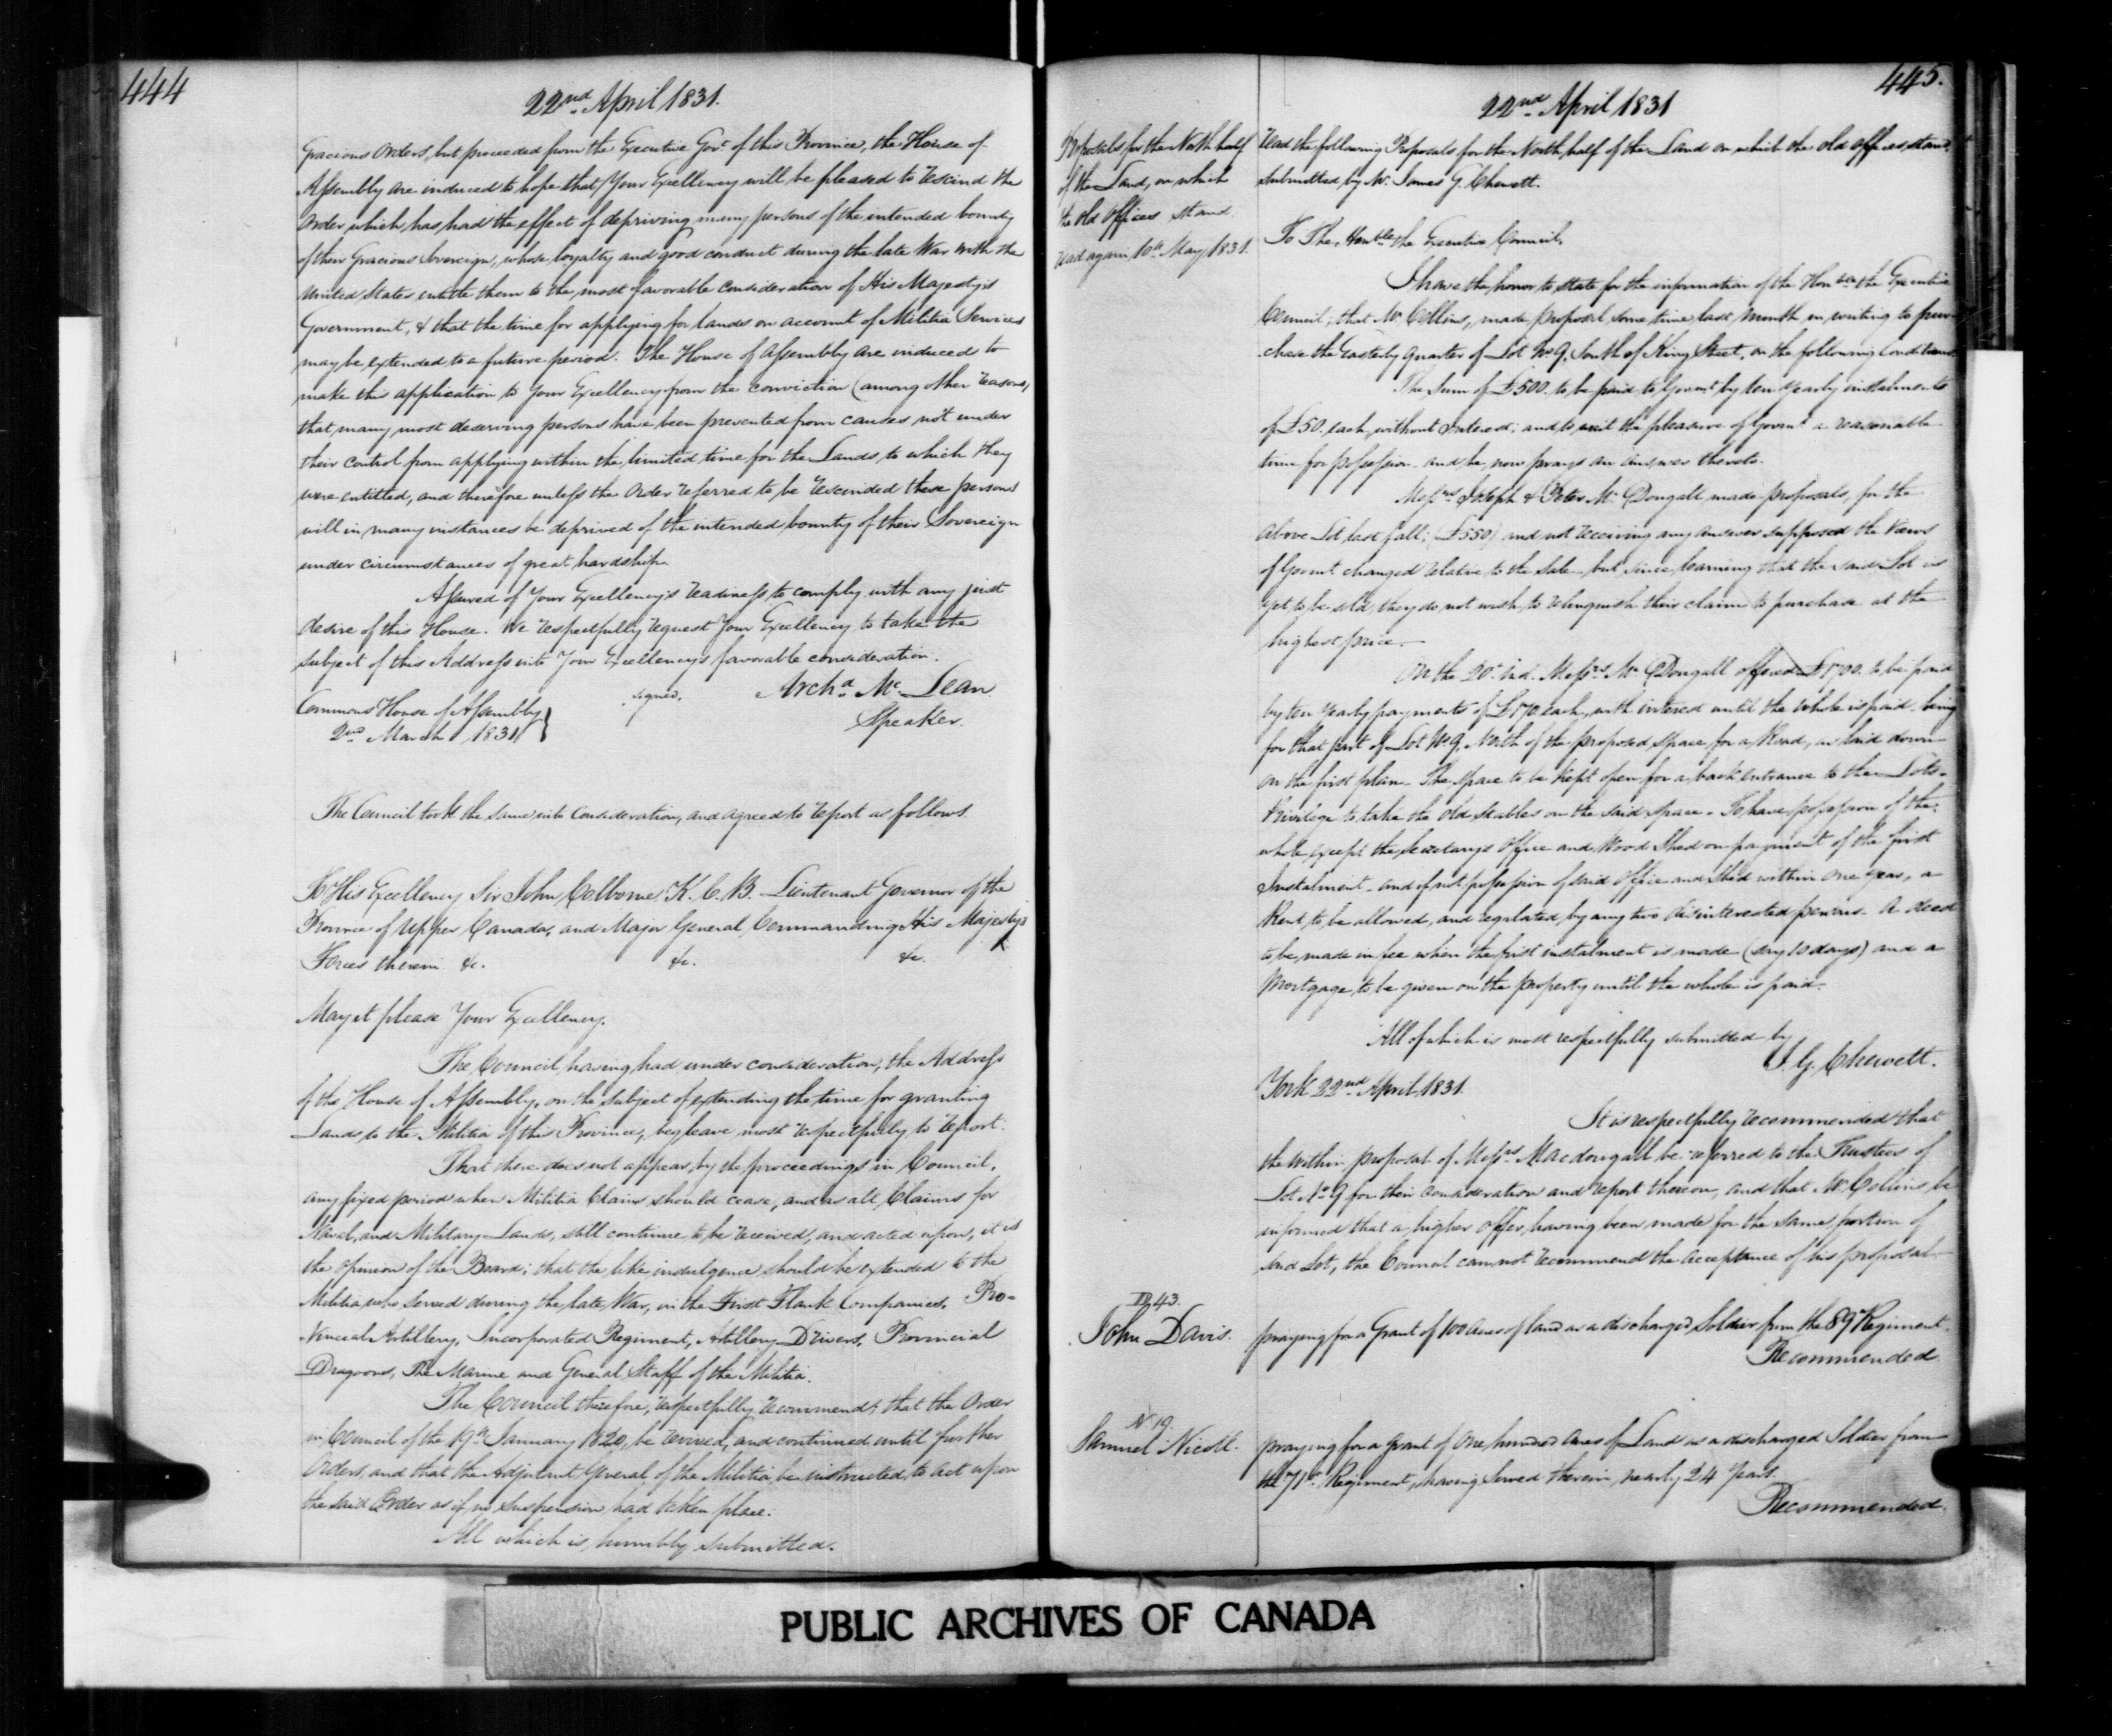 444
22nd April 1831.
Gracious Orders, but proceeded from the Executive Govt of this Province, the House of
Assembly are induced to hope that Your Excellency will be pleased to rescind the
Order which has had the effect of depriving many persons of the intended bounty
of their Gracious Sovereign, whose loyalty and good conduct during the late War with the
United States entitle them to the most favorable consideration of His Majesty's
Government, & that the time for applying for lands on account of Militia Services
may be extended to a future period. The House of Assembly are induced to
make this application to Your Excellency from the conviction (among other reasons,
that many most deserving persons have been prevented from causes not under
their control from applying within the limited time for the Lands to which they
were entitled, and therefore unless the Order referred to be rescinded these persons
will in many instances be deprived of the intended bounty of their Sovereign
under circumstances of great hardship.
Assured of Your Excellency's readiness to comply with any just
desire of this House. We respectfully request Your Excellency to take the
subject of this Address into Your Excellency's favorable consideration.
Commons House of Assembly
2nd March 1831
signed.
Archd. Mc. Lean.
Speaker.
The Council took the same into Consideration, and agreed to report as follows
To His Excellency Sir John Colborne K. C. B. Lieutenant Governor of the
Province of Upper Canada, and Major General Commanding His Majesty's
Forces therein &c. &c. &c.
May it please Your Excellency.
The Council having had under consideration, the Address
of the House of Assembly, on the subject of extending the time for granting
Lands to the Militia of this Province, beg leave most respectfully to report.
That there does not appear, by the proceedings in Council,
any fixed period when Militia Claims should cease, and as all Claims for
Naval, and Military Lands, still continue to be received, and acted upon, it is
the opinion of the Board; that the like indulgence should be extended to the
Militia, who served during the late War, in the First Flank Companies, Pro-
vincial Artillery, Incorporated Regiment, Artillery Drivers, Provincial
Dragoons, The Marine and General Staff of the Militia.
The Council therefore, respectfully recommends that the Order
in Council of the 19th January 1820, be revived, and continued until further
Orders, and that the Adjutant General of the Militia be instructed to act upon
the said Order as if no suspension had taken place.
All which is humbly submitted.
445.
22nd April 1831
Proposals for the North half
of the Land, on which
the Old Offices stand.
read again 10th May 1831.
Read the following Proposals for the North half of the Land on which the old offices stand,
submitted by Mr. James G. Chewett.
To The Honble the Executive Council,
I have the honor to state for the information of the Honble the Executive
Council; that Mr Collins, made proposal some time last month in writing to pur-
chase the Easterly Quarter of Lot No 9, South of King Street, on the following conditions.
The Sum of £500. to be paid to Govent by ten yearly instalments
of £50. each, without Interest; and to wait the pleasure of Govent a reasonable
time for possession. and he now prays an answer thereto.
Messrs Joseph & Peter Mc Dougall made proposals, for the
above Lot last fall; (£550) and not receiving any answer supposed the views
of Govent changed relative to the Sale but since learning that the said Lot is
yet to be sold, they do not wish to relinquish their claim to purchase at the
highest price.
On the 20th Ind. Messrs Mc Dougall offered £1700. to be paid
by ten yearly payments of £170 each, with interest until the whole is paid being
for that part of Lot No 9, North of the proposed space for a Road, as laid down
on the first plan. The space to be kept open for a back entrance to the Lots.
Privilege to take the old stables on the said space. To have possession of the
whole except the Secretary's Office and Wood Shed on payment of the first
Instalment. and if not possession of said Office and Shed within one year, a
Rent, to be allowed, and regulated by any two disinterested persons. A deed
to be made in fee when the first instalment is made (say 10 days) and a
Mortgage to be given on the property until the whole is paid.
All of which is most respectfully submitted by
J. G. Chewett.
York 22nd April 1831.
It is respectfully recommended that
the within proposal of Messrs Macdougall be referred to the Trustees of
Lot No 9 for their consideration and report thereon, and that Mr Collins be
informed that a higher offer having been made for the same portion of
said Lot, the Council cannot recommend the acceptance of his proposal.
D 43.
John Davis.
praying for a Grant of 100 Acres of land as a discharged Soldier from the 89th Regiment.
Recommended
N 19.
Samuel Nicoll.
praying for a grant of One hundred Acres of Land as a discharged Soldier from
the 71st Regiment, having served therein nearly 24 Years.
Recommended.
PUBLIC ARCHIVES OF CANADA